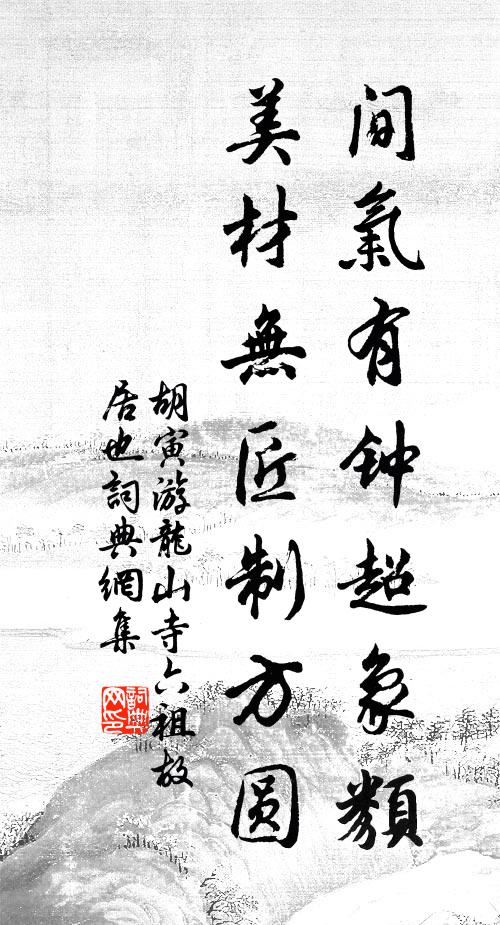 间氣有钟超象類
美材無匠制方圆
胡寅游龍山寺六祖故
居也詞典網集
詞典网印